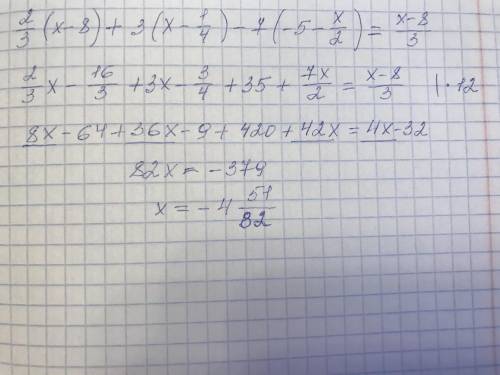 2/3 (x-8) + 3(x - 1/4) - 7(-5 - x/2) = x-8/3
2/3 x - 16/3 + 3x - 3/4 + 35 + 7x/2 = x-8/3 |·12
8x - 64 + 36x - 9 + 420 + 42x = 4x - 32
82x = -379
x = -4 51/82